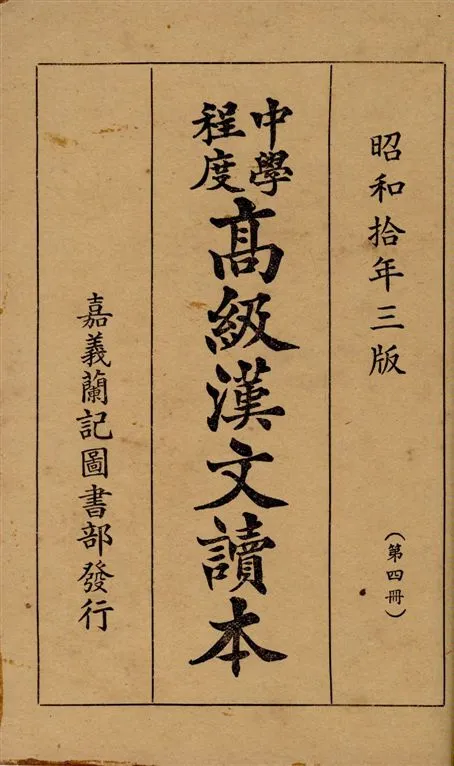 昭和拾年三版
(第四冊)
中學
程度
高級漢文讀本
嘉義蘭記圖書部發行